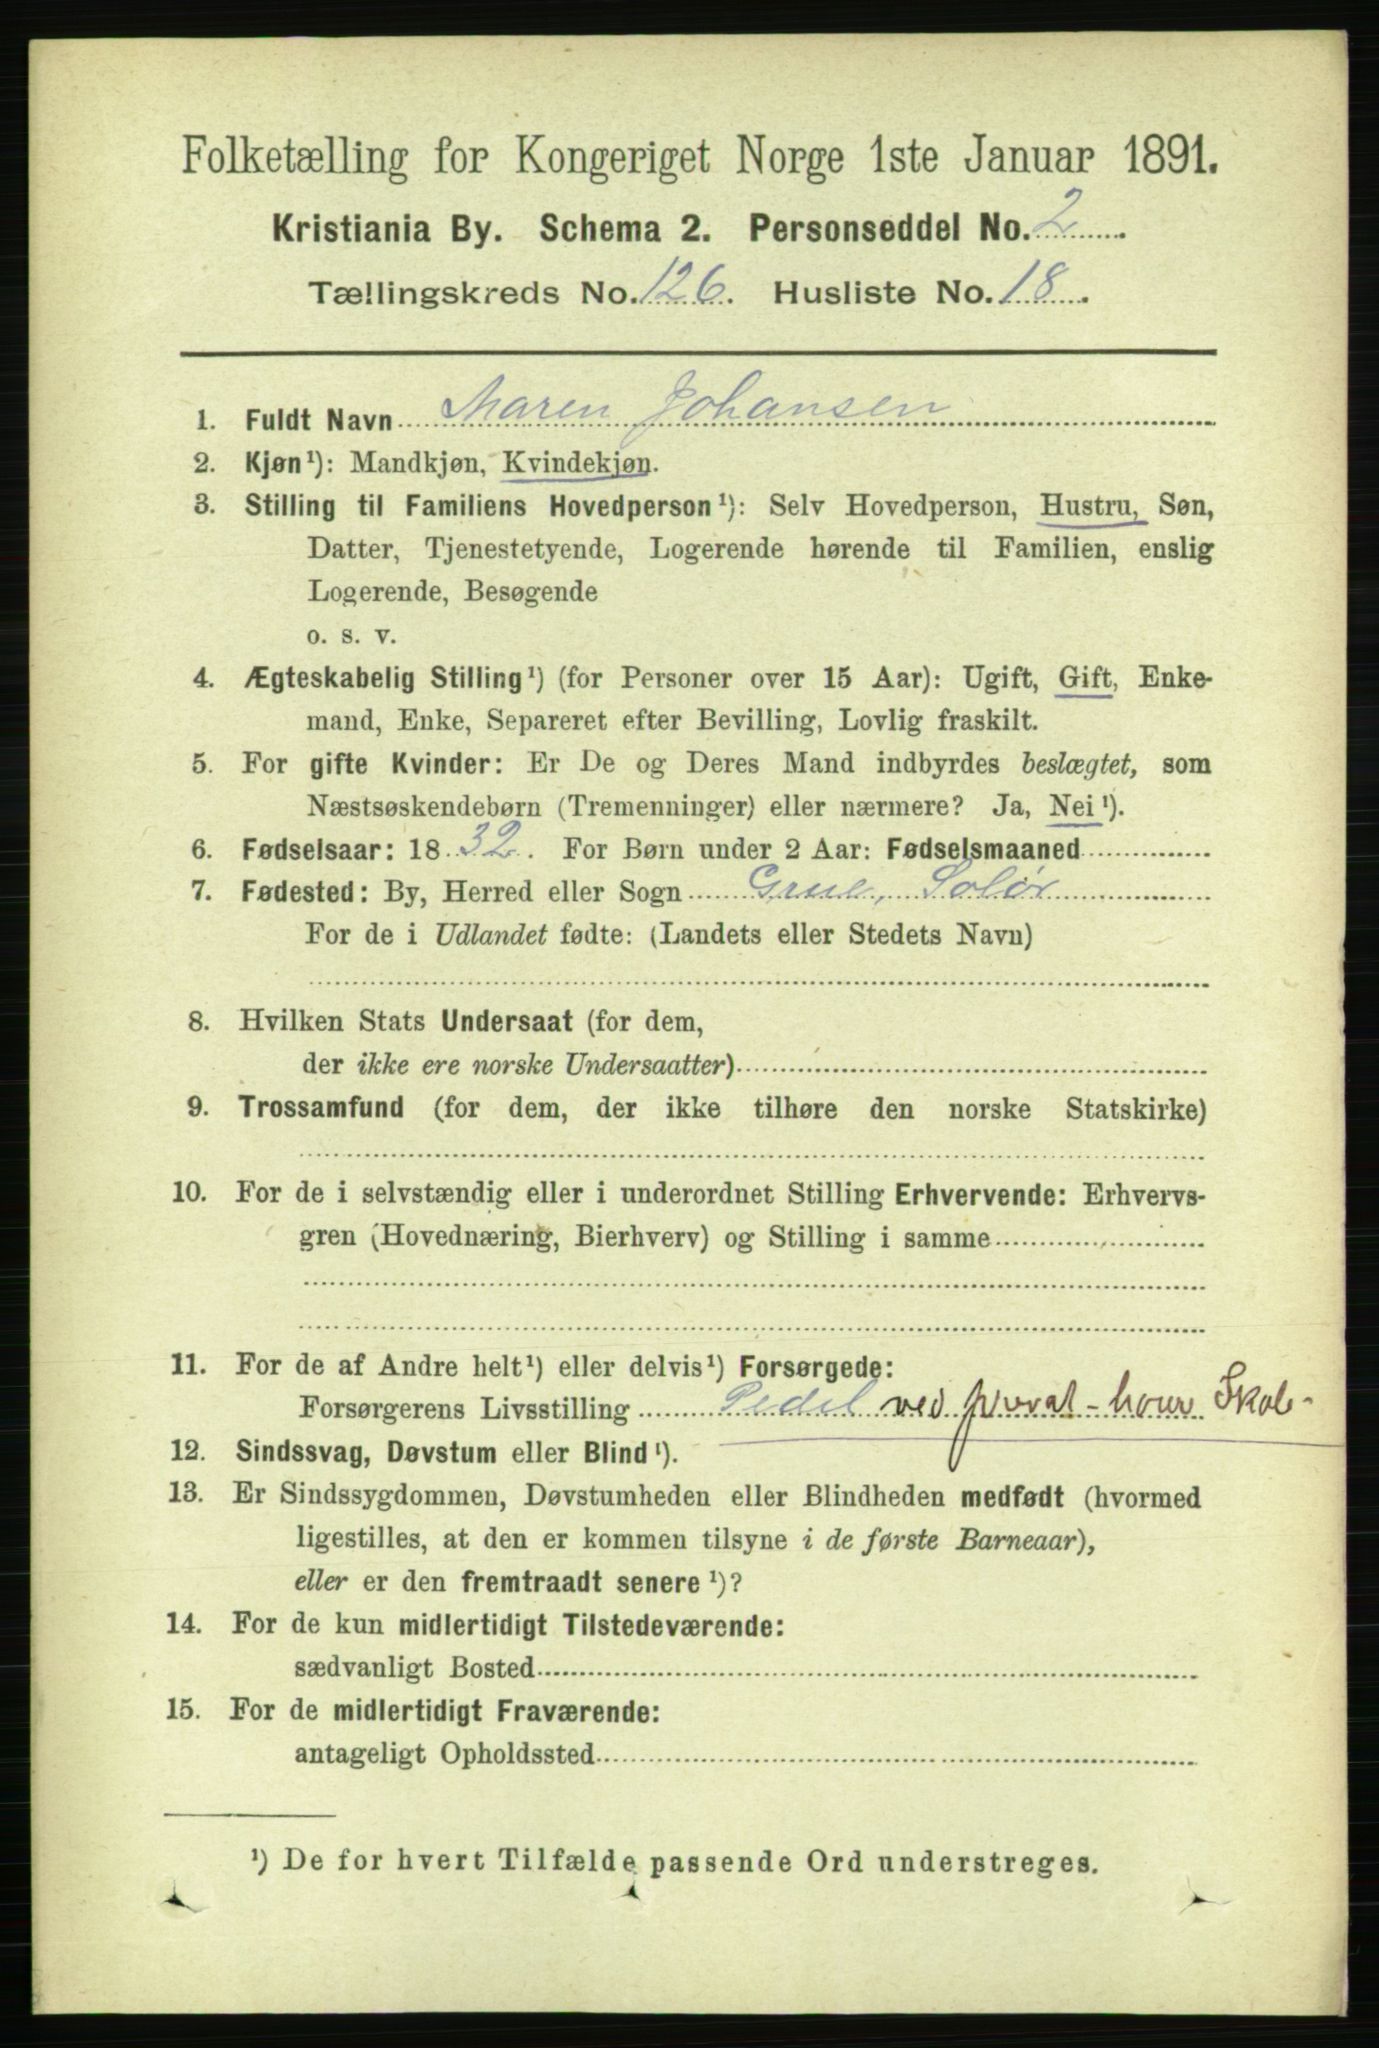 Folketælling for Kongeriget Norge 1ste Januar 1891.
Kristiania By. Schema 2. Personseddel No. 2
Tællingskreds No. 126. Husliste No. 18.
1. Fuldt Navn Maren Johansen
2. Kjøn¹): Mandkjøn, Kvindekjøn.
3. Stilling til Familiens Hovedperson¹): Selv Hovedperson, Hustru, Søn,
Datter, Tjenestetyende, Logerende hørende til Familien, enslig
Logerende, Besøgende
o. s. v.
4. Ægteskabelig Stilling¹) (for Personer over 15 Aar): Ugift, Gift, Enke-
mand, Enke, Separeret efter Bevilling, Lovlig fraskilt.
5. For gifte Kvinder: Er De og Deres Mand indbyrdes beslægtet, som
Næstsøskendebørn (Tremenninger) eller nærmere? Ja, Nei¹).
6. Fødselsaar: 1832. For Børn under 2 Aar: Fødselsmaaned
7. Fødested: By, Herred eller Sogn Grue, Solør
For de i Udlandet fødte: (Landets eller Stedets Navn)
8. Hvilken Stats Undersaat (for dem,
der ikke ere norske Undersaatter)
9. Trossamfund (for dem, der ikke tilhøre den norske Statskirke)
10. For de i selvstændig eller i underordnet Stilling Erhvervende: Erhvervs-
gren (Hovednæring, Bierhverv) og Stilling i samme
11. For de af Andre helt¹) eller delvis¹) Forsørgede:
Forsørgerens Livsstilling Pedel ved Skole
12. Sindssvag, Døvstum eller Blind¹).
13. Er Sindssygdommen, Døvstumheden eller Blindheden medfødt (hvormed
ligestilles, at den er kommen tilsyne i de første Barneaar),
eller er den fremtraadt senere¹)?
14. For de kun midlertidigt Tilstedeværende:
sædvanligt Bosted
15. For de midlertidigt Fraværende:
antageligt Opholdssted
¹) De for hvert Tilfælde passende Ord understreges.